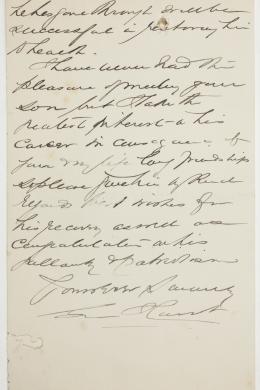 he has gone through will be
successful in restoring him
to health.
I have never had the
pleasure of meeting your
son but I take the
greatest interest in his
career in consequence of
your long friendship
so please him by kind
regards & wishes for
his recovery as well as
congratulation on his
gallantry &
Yours Ever Sincerely